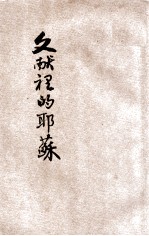 文献裡的耶蘇